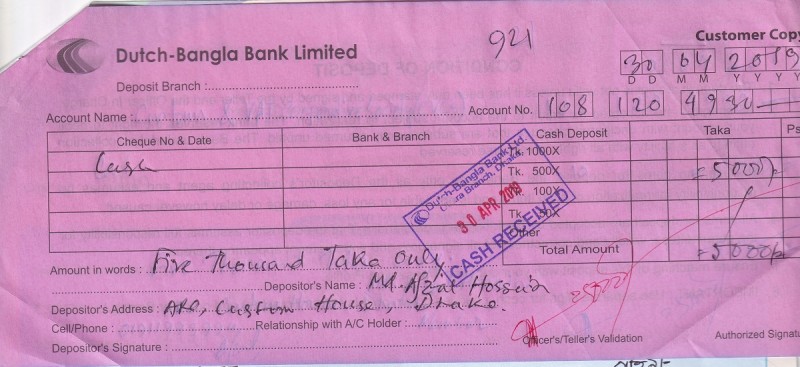 Customer Copy
921
Dutch-Bangla Bank Limited
30 04 2019
D D M M Y Y Y Y
Deposit Branch :
Account Name : Account No. 108 120 4930
Cheque No & Date Bank & Branch Cash Deposit Taka Ps
Cash Tk. 1000X
Tk. 500X = 5000/=
Tk. 100X
Tk. 50X
Other
Total Amount = 5000/=
Dutch-Bangla Bank Ltd
Branch, Dhaka
30 APR 2019
CASH RECEIVED
Amount in words : Five Thousand Taka Only
Depositor's Name : Md. Afzal Hossain
Depositor's Address : ARO, Custom House, Dhaka.
Cell/Phone : Relationship with A/C Holder :
Depositor's Signature : Officer's/Teller's Validation Authorized Signatu